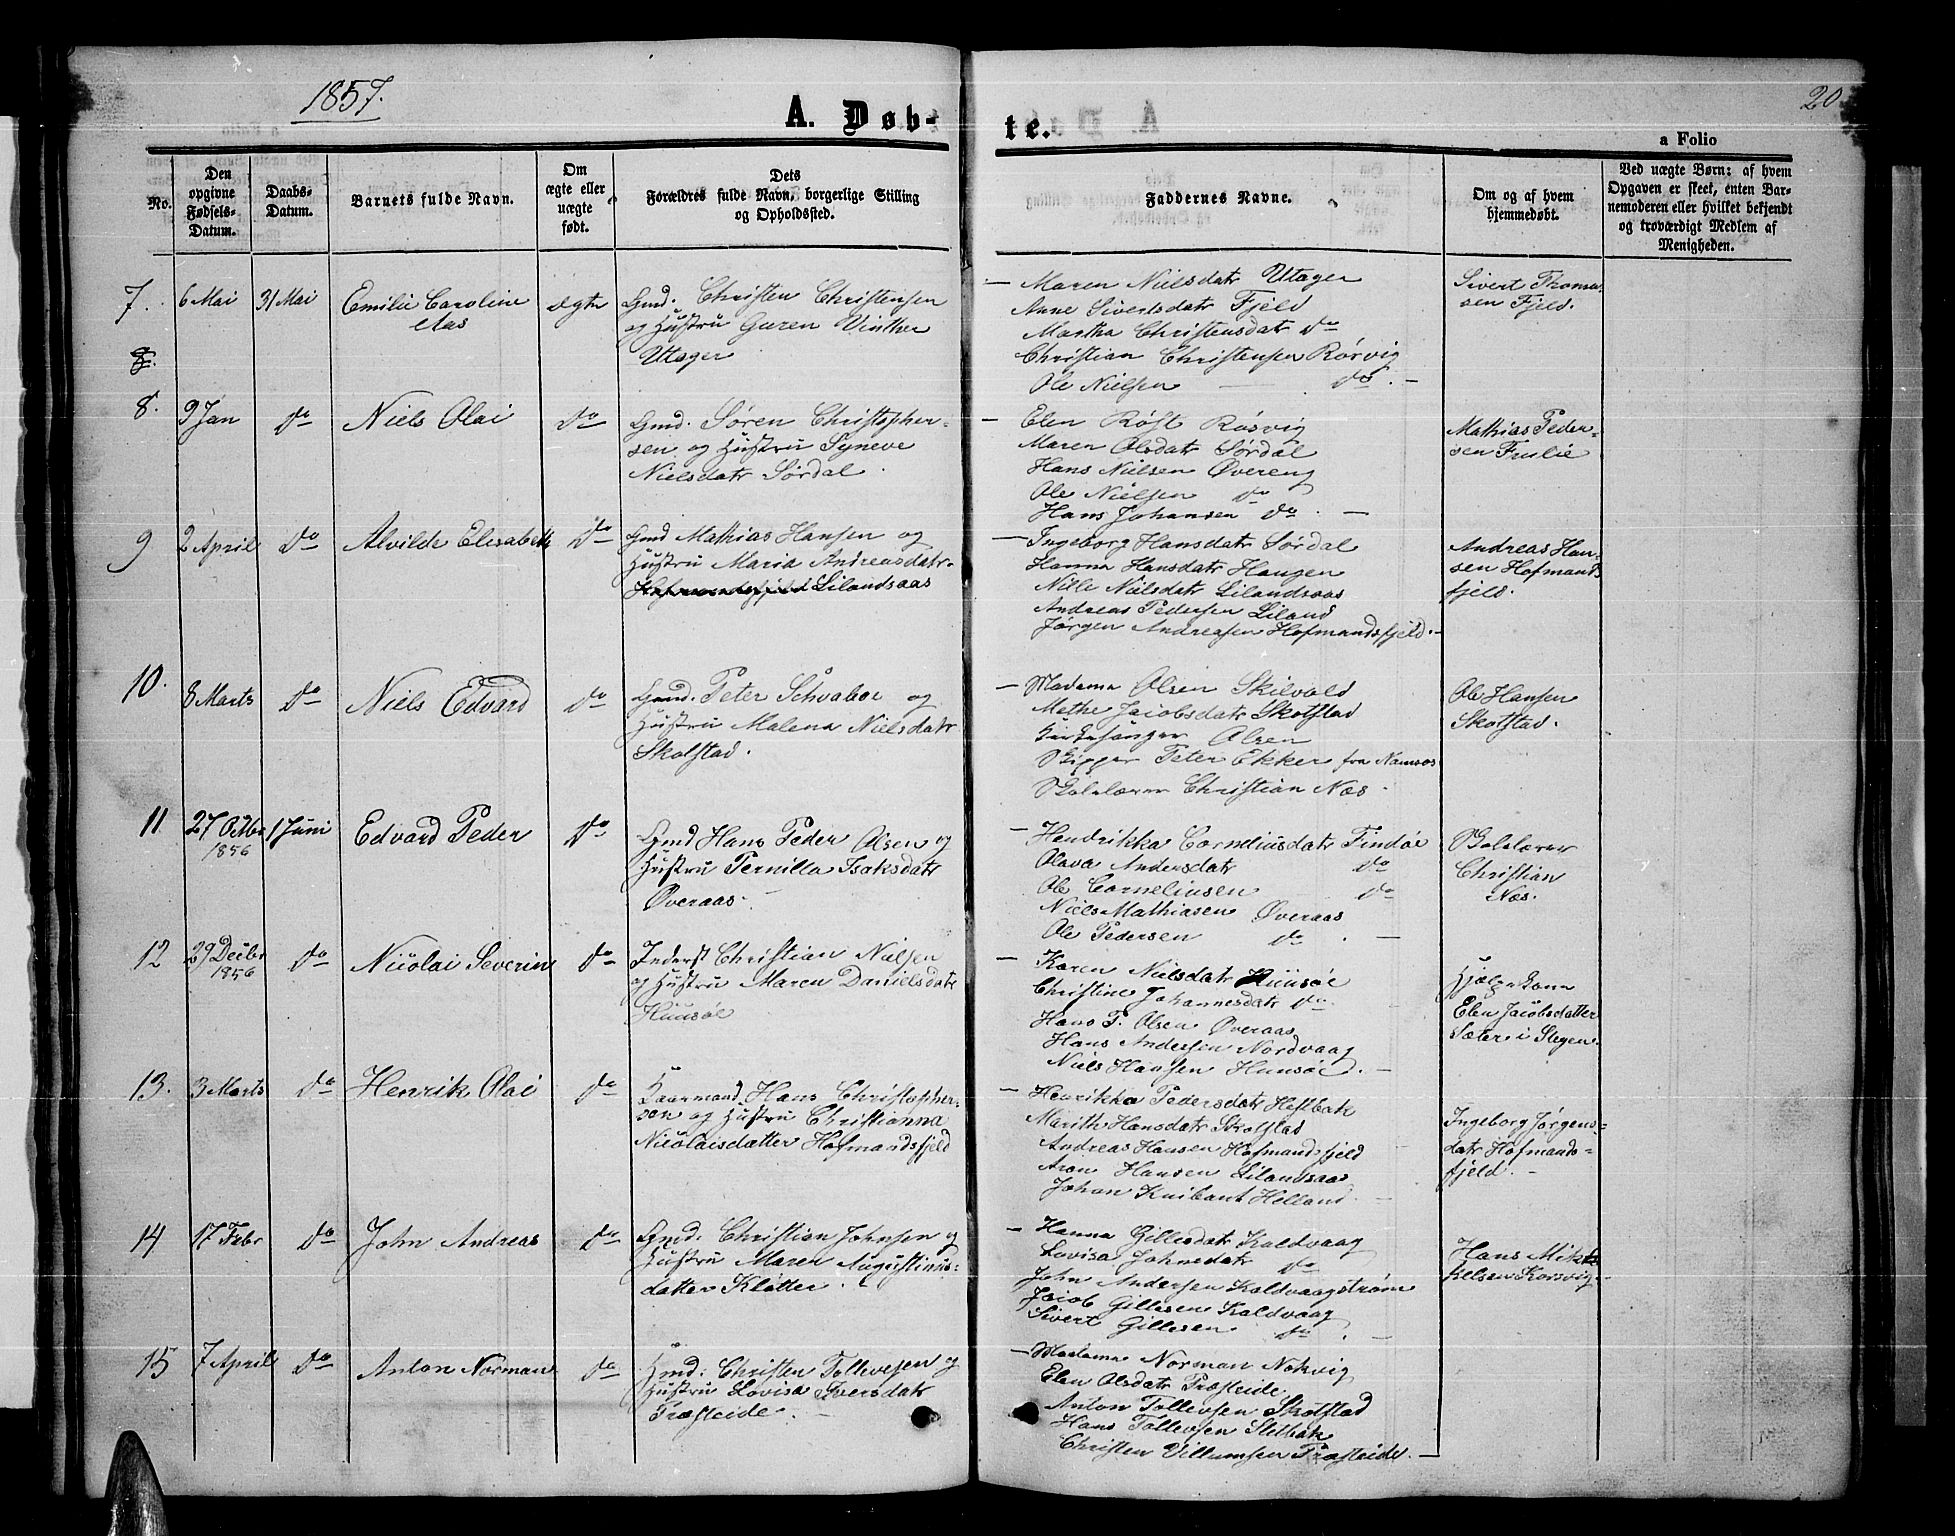 1857.
A. Døb-
te.
20
a Folio
No.
Den opgivne Fødsels-Datum.
Daabs-Datum.
Barnets fulde Navn.
Om ægte eller uægte født.
Dets Forældres fulde Navn, borgerlige Stilling og Opholdssted.
Faddernes Navne.
Om og af hvem hjemmedøbt.
Ved uægte Børn: af hvem Opgaven er skeet, enten Barnemoderen eller hvilket bekjendt og troværdigt Medlem af Menigheden.
7. 6 Mai 31 Mai Emilie Caroline ægte
Gmd. Christen Christensen
og Hustru Guren Vinther
Utager
— Maren Nielsdatr Utager
Anne Sivertsdatr Fjeld
Martha Christensdatr do
Christian Christensen Rörvig
Ole Nielsen — do. —
Sivert Thoma-
sen Fjeld.
8.
8. 9 Jan do Niels Olai do
Gmd. Sören Christopher-
sen og Hustru Syneve
Nielsdatr Sördal.
— Elen Röst Rösvig
Maren Olsdatr Sördal
Hans Nielsen Övereng
Ole Nielsen do
Hans Johansen do. —
Mathias Peder-
sen
9 2 April do Alvilde Elisabeth do
Gmd Mathias Hansen og
Hustru Maria Andreasdatr-
Hofmandsfjeld Lilandsaas
— Ingeborg Hansdatr Sördal
Hanna Hansdatr Haugen
Nille Nielsdatr Lilandsaas
Andreas Pedersen Liland
Jörgen Andreasen Hofmandsfjeld. -
Andreas Han-
sen Hofmands-
fjeld.
10. 8 Marts do Niels Edvard do
Gmd. Peter Schvaboe og
Hustru Malena Nielsdatr
Skolstad.
— Madama Olsen Skilvold
Mathe Jacobsdatr Skotstad
Kirkesanger Olsen
Skipper Peter Ekker fra Namsos
Skolelærer Christian Næs.
Ole Hansen
Skotstad.
11 27 Octbr 1 Juni Edvard Peder do
1856
Gmd Hans Peder Olsen og
Hustru Pernilla Isaksdatr
Överaas.
— Hendrikka Corneliusdatr Findöe
Olava Andersdatr do
Ole Corneliusen do
Niels Mathiasen Överaas
Ole Pedersen do. —
Skolelærer
Christian
Næs.
12 29 Decbr do Nicolai Severin do
1856
Inderst Christian Nielsen
og Hustru Maren Danielsdatr
Huusöe
— Karen Nielsdatr Huusöe
Christine Johannesdatr do.
Hans P. Olsen Överaas
Hans Andersen Nordvaag
Niels Hansen Huusöe. —
Hjælpekone
Elen Jacobsdatter
Sæter i Stegen.
13. 3 Marts do Henrik Olai do
Baarmand Hans Christopher-
sen og Hustru Christianna
Nicolaisdatter Hofmandsfjeld
— Henrikka Pedersdatr Hestbak
Marith Hansdatr Skotstad
Andreas Hansen Hofmandsfjeld
Aron Hansen Lilandsaas
Johan Knibant Helland. —
Ingeborg Jörgens-
datr Hofmands-
fjeld. -
14 17 Febr do John Andreas do
Gmd: Christian Johnsen og
Hustru Maren Augustinus-
datter Klötter. -
— Hanna Gillesdatr Kaldvaag
Lovisa Johnsdatr do
John Andersen Kaldvaagström
Jacob Gillesen Kaldvaag
Sivert Gillesen do. —
Hans Mik-
kelsen Korsvig.
15 7 April do Anton Norman do
Hmd: Christen Tollevsen og
Hustru Lovisa Iversdatr
Præsteide. —
— Madama Norman Nokvig
Elen Olsdatr Præsteide
Anton Tollevsen Skotstad
Hans Tollevsen Sletbak
Christen Villumsen Præsteide. —